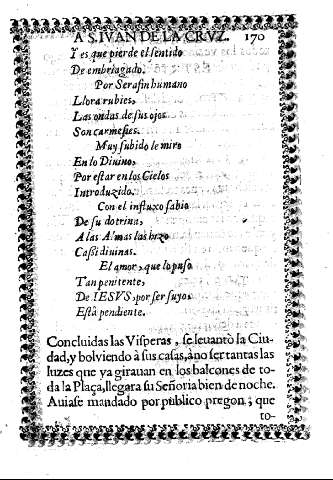 A S. IVAN DE LA CRVZ. 170
Y es que pierde el sentido
De embriagado.
Por Serafin humano
Llora rubies,
Las ondas de sus ojos
Son carmesies.
Muy subido le miro
En lo Divino,
Por estar en los Cielos
Introduzido.
Con el influxo sabio
De su dotrina,
A las Almas las hizo
Casi divinas.
El amor, que lo puso
Tan penitente,
De IESVS, por ser suyo,
Està pendiente.
Concluidas las Visperas, se leuantò la Ciu-
dad, y bolviendo à sus casas, à no ser tantas las
luzes que ya girauan en los balcones de to-
da la Plaça, llegara su Señoria bien de noche.
Auiase mandado por publico pregon, que
to-